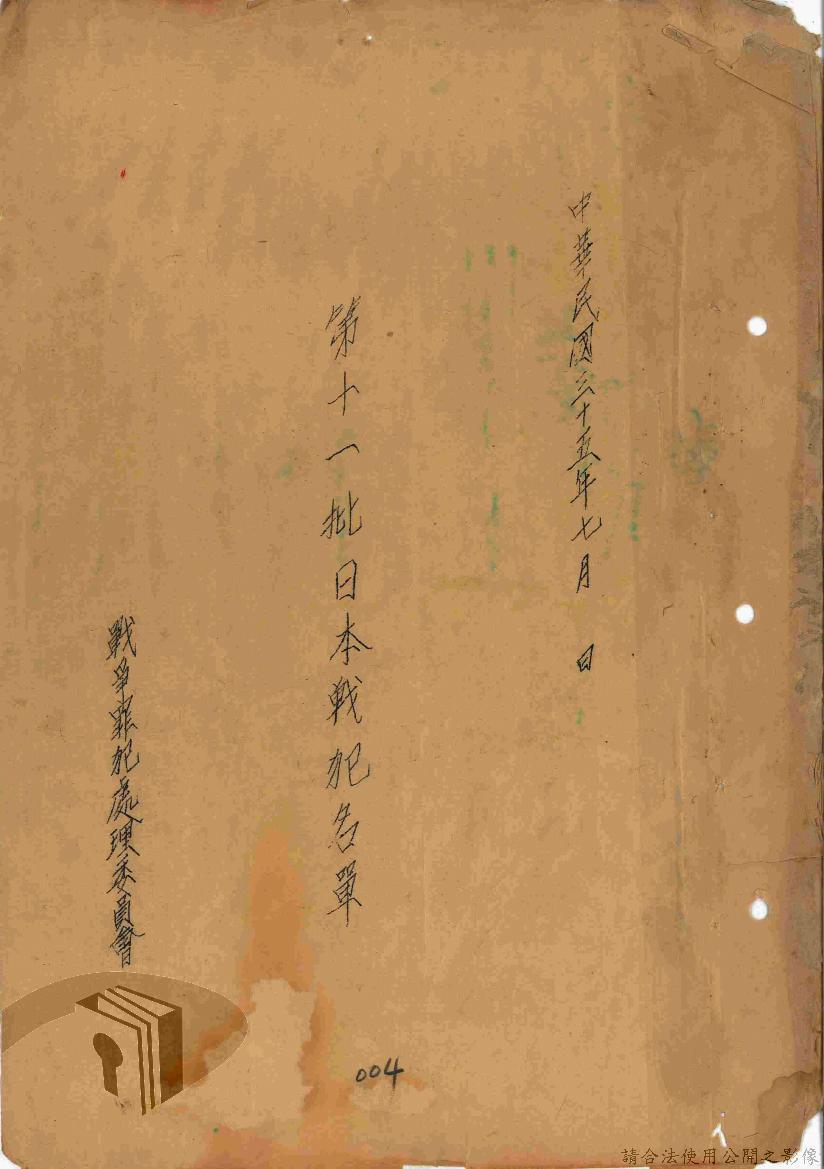 中華民國三十五年七月　日
第十一批日本戰犯名單
戰爭罪犯處理委員會
004
請合法使用公開之影像